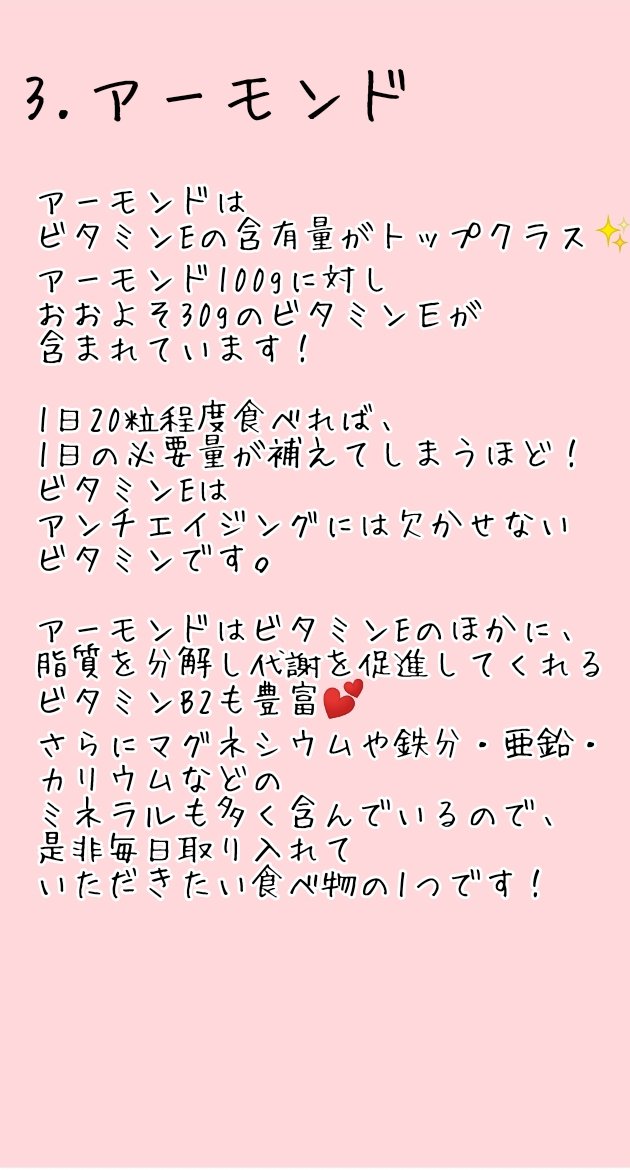 3.アーモンド
アーモンドは
ビタミンEの含有量がトップクラス✨
アーモンド100gに対し
おおよそ30gのビタミンEが
含まれています!
1日20粒程度食べれば、
1日の必要量が補えてしまうほど!
ビタミンEは
アンチエイジングには欠かせない
ビタミンです。
アーモンドはビタミンEのほかに、
脂質を分解し代謝を促進してくれる
ビタミンB2も豊富💕
さらにマグネシウムや鉄分・亜鉛・
カリウムなどの
ミネラルも多く含んでいるので、
是非毎日取り入れて
いただきたい食べ物の1つです!